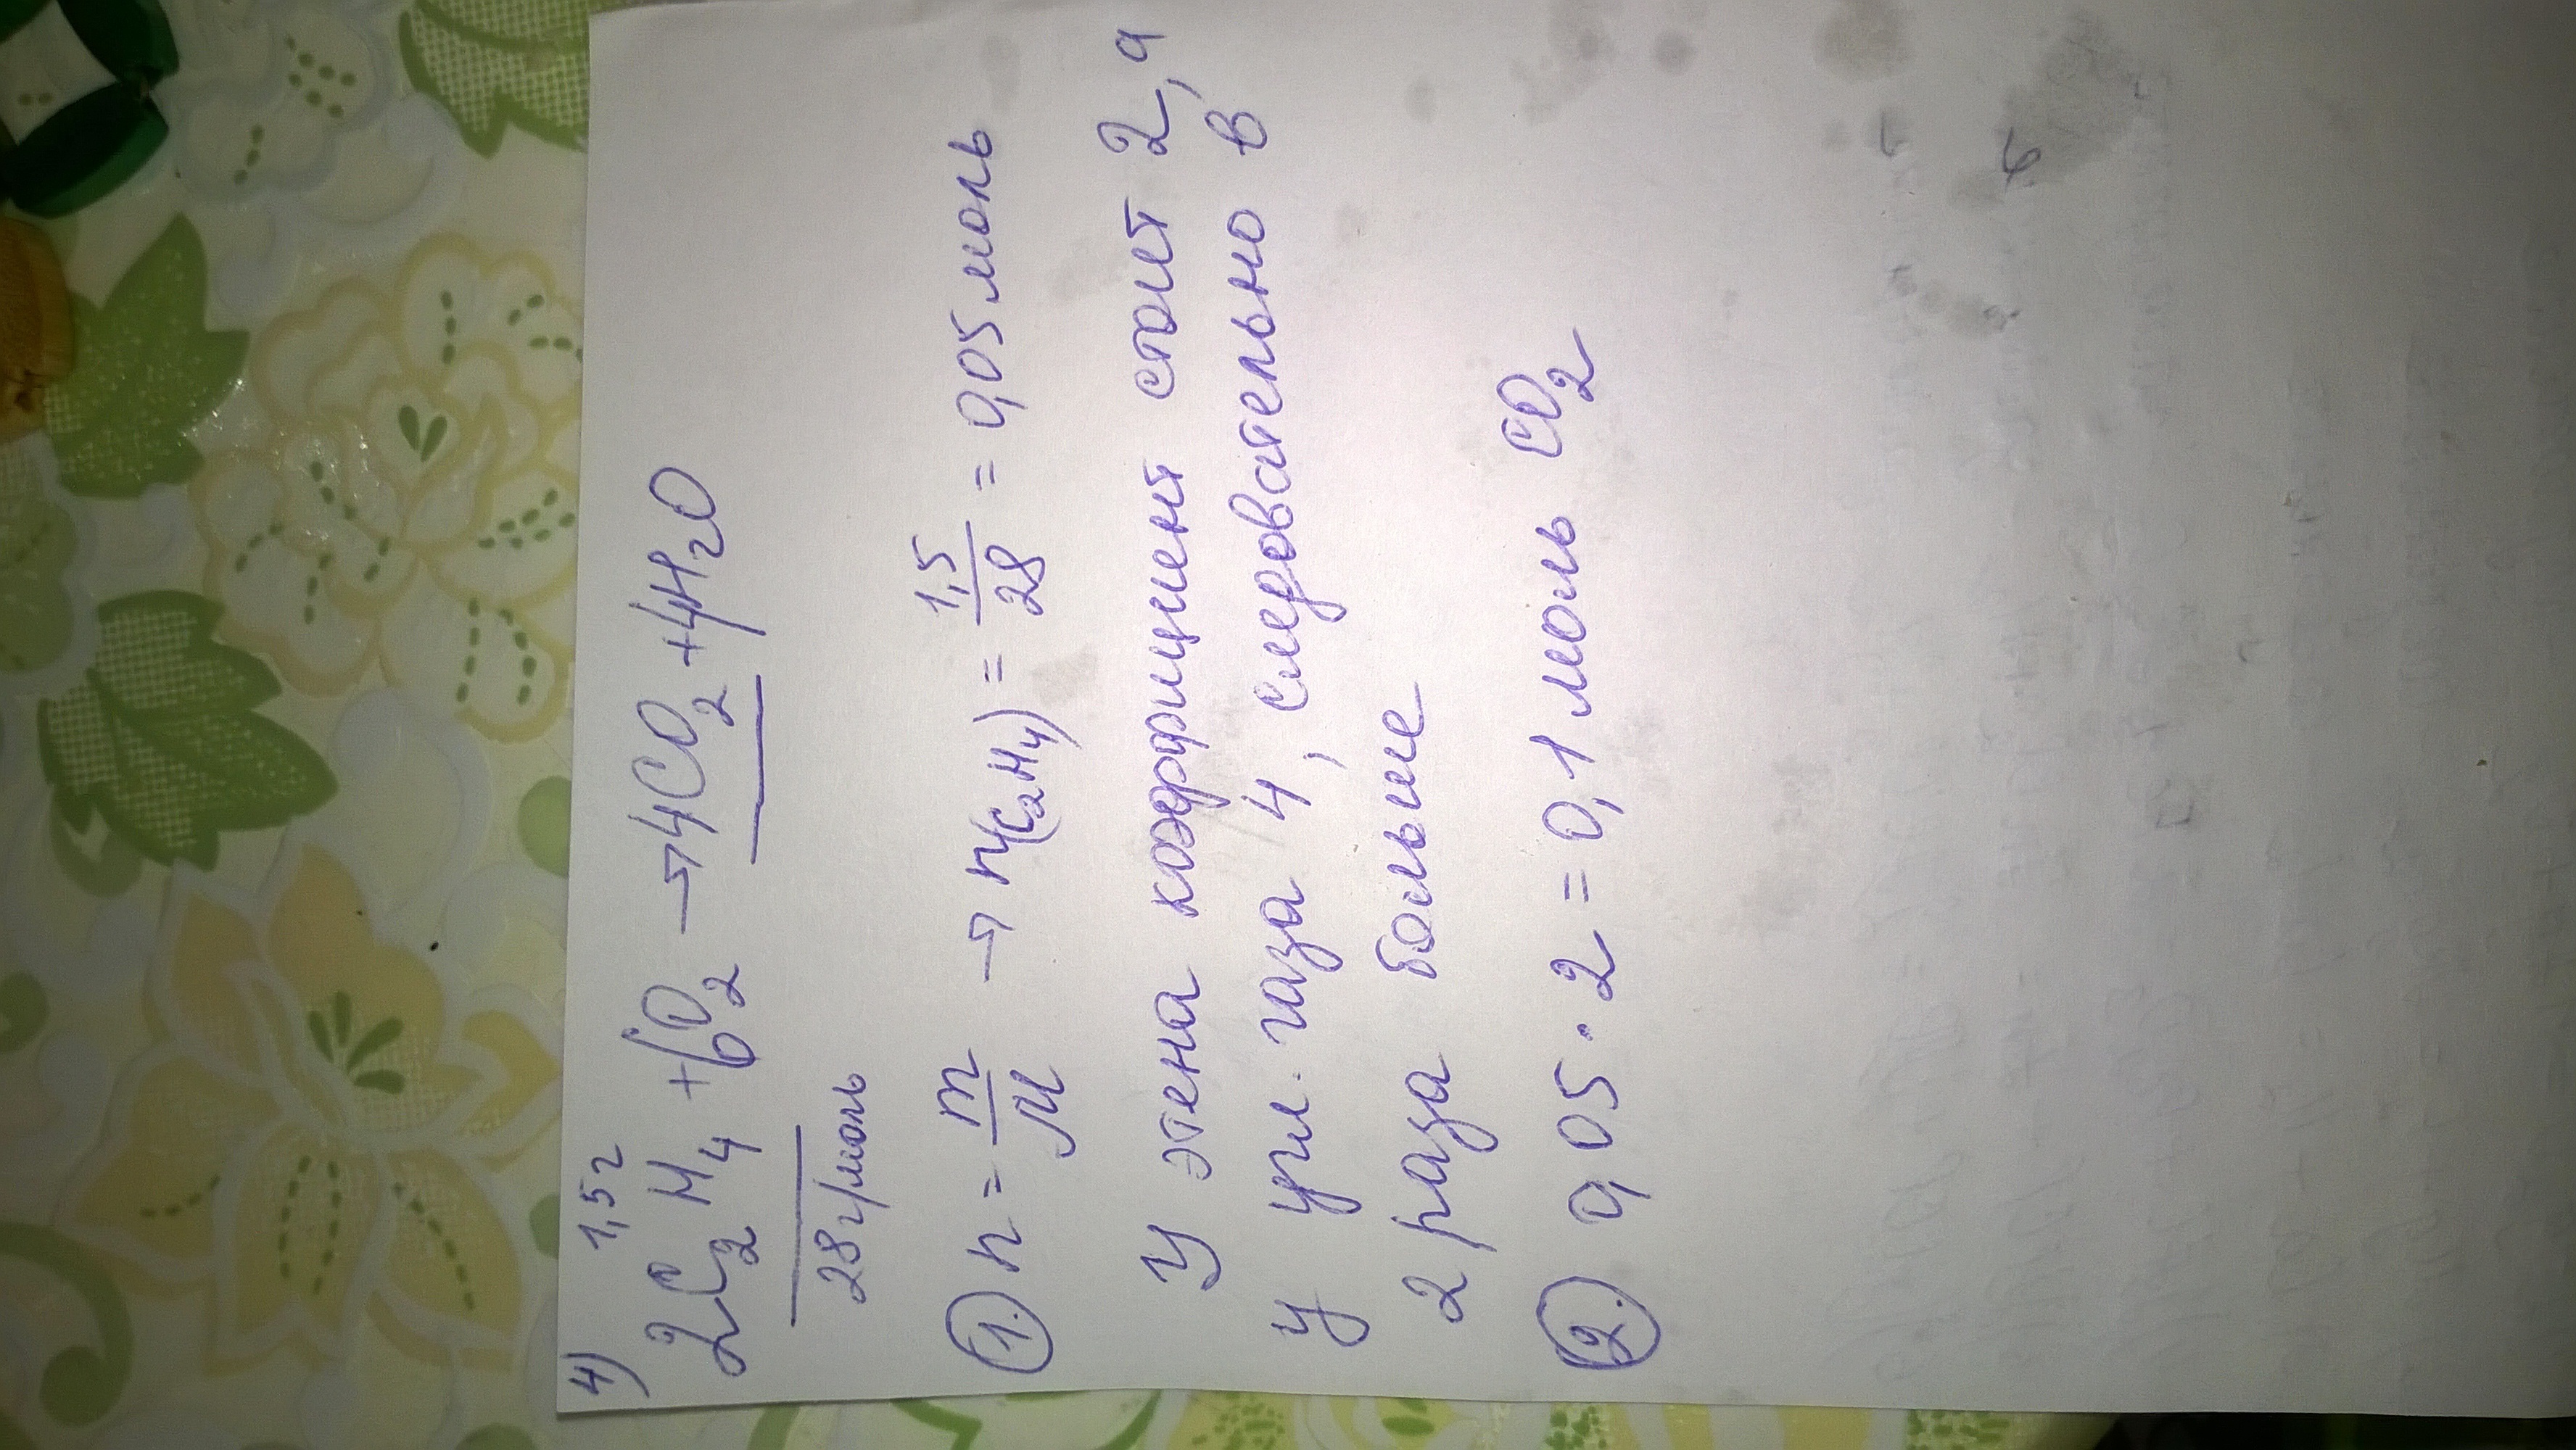 4) 1,5 г
2C₂H₄ + 6O₂ → 4CO₂ + 4H₂O
28 г/моль
1. n = m/M → n(C₂H₄) = 1,5/28 = 0,05 моль
У этена коэффициент стоит 2, а
у угл. газа 4, следовательно в
2 раза больше
2. 0,05 · 2 = 0,1 моль CO₂